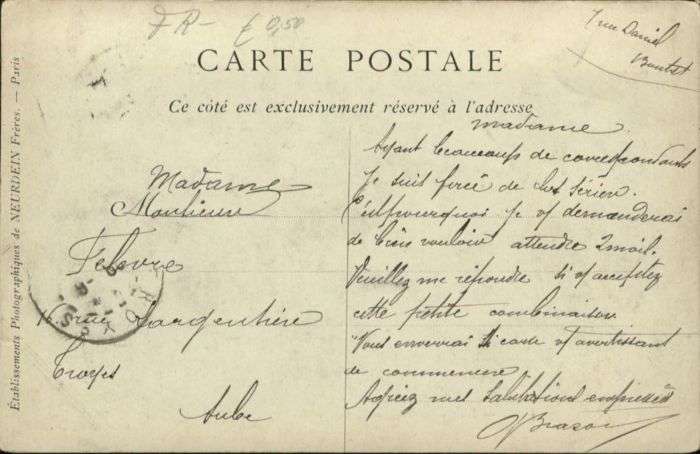 FR- £ 0,50
7 rue Daniel
CARTE POSTALE
Ce côté est exclusivement réservé à l'adresse
Établissements Photographiques de NEURDEIN Frères. — Paris
Madame
Monsieur
Lefevre
rue Largentière
Troyes
Aube
Madame
Ayant beaucoup de correspondants
Je suis forcé de les sérier.
C'est pourquoi je v/ demanderai
de bien vouloir attendre 2 mois.
Veuillez me répondre si v/ acceptez
cette petite combinaison
Vous enverrai 1 carte v/ avertissant
de commencer
Agréez mes salutations empressées